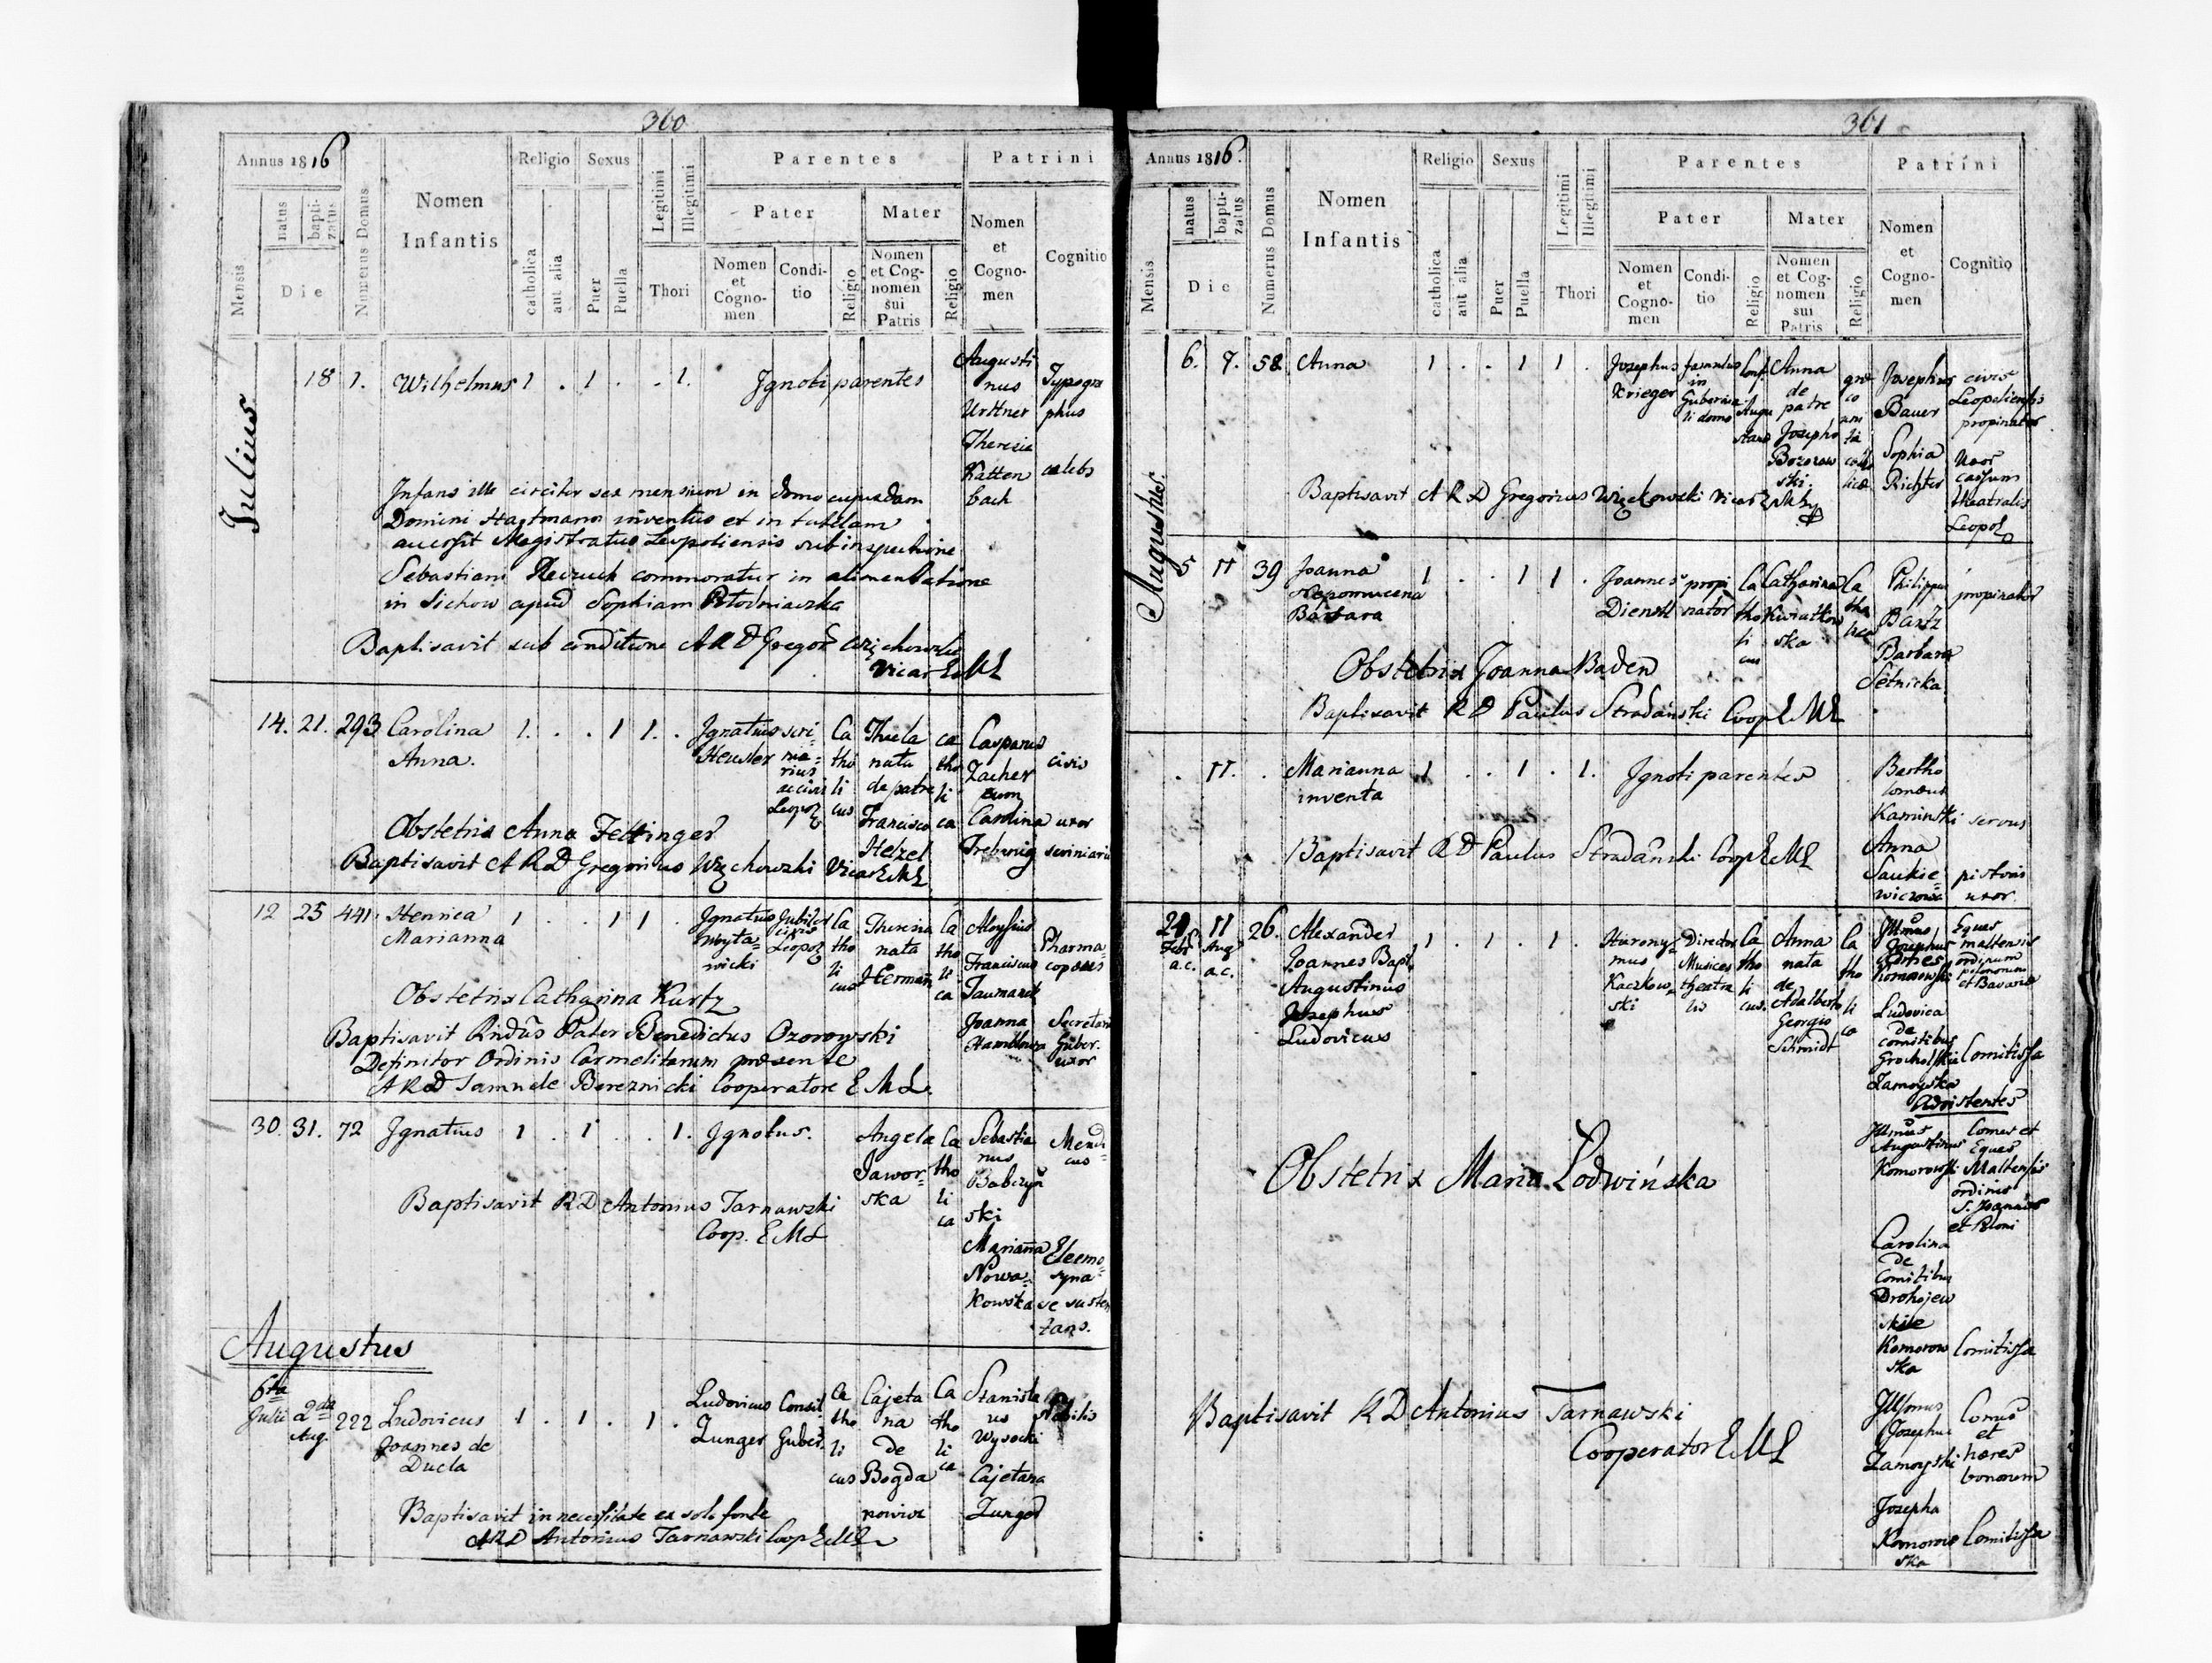 360
Annus 1816
Mensis
Die
natus
bapti-
zatus
Numerus Domus
Nomen
Infantis
Religio
catholica
aut alia
Sexus
Puer
Puella
Legitimi
Illegitimi
Thori
Parentes
Pater
Nomen
et
Cogno-
men
Condi-
tio
Religio
Mater
Nomen
et Cog-
nomen
sui
Patris
Religio
Patrini
Nomen
et
Cogno-
men
Cognitio
Julius
18 1. Wilhelmus 1 . 1 . . 1. Ignoti parentes
Augusti
nus
Urttner
Typogra
phus
Theresia
Katten
bach
caelebs
Infans ille circiter sex mensium in domo cujusdam
Domini Hartmann inventus et in tutelam
Magistratus Leopoliensis sub inspectione
Sebastiani commoratur in alimentatione
in Sichow apud Sophiam
Baptisavit sub conditione A R D Gregor
Vicar E M L
14. 21. 293 Carolina
Anna.
1. . . 1 1. .
Ignatius
Heusler
scri-
nia-
rius
ac civis
Leopol
Ca
tho
li
cus
Thecla
nata
de patre
Francisco
Helzel
ca
tho
li
ca
Casparus
Zacher
cum
Carolina
Trebenig
civis
uxor
scriniarii
Obstetrix Anna Fettinger
Baptisavit A R D Gregorius Więchowski Vicar E M L
12 25 441. Henrica
Marianna
1 . . 1 1 .
Ignatius
Woyta-
wicki
Jubiler
civis
Leopol
Ca
tho
li
cus
Theresia
nata
Hermañ
Ca
tho
li
ca
Aloysius
Franciscus
Pharma-
copaeus
Joanna
Secretarii
Guber.
uxor
Obstetrix Catharina Kurtz
Baptisavit Rndus Pater Benedictus Ozorowski
Definitor Ordinis Carmelitarum praesente
A R D Samuele Bereznicki Cooperatore E M L.
30. 31. 72 Ignatius 1 . 1 . . 1. Ignotus.
Angela
Jawor-
ska
Ca
tho
li
ca
Sebastia
nus
Babczyń
ski
Mendi-
cus
Marianna
Nowa-
kowska
Eleemo-
syna
se susten
tans.
Baptisavit R D Antonius Tarnawski
Coop. E M L
Augustus
6ta
Julii
2da
Aug.
222 Ludovicus
Joannes de
Ducla
1 . 1 . 1 .
Ludovicus
Zunger
Consil
Guber.
Ca
tho
li
cus
Cajeta
na
de
Bogda
nowicz
Ca
tho
li
ca
Stanisla
us
Wysocki
Nobilis
Cajetana
Zunger
Baptisavit in necessitate ex solo fonte
A R D Antonius Tarnawski Coop E M L
361
Annus 1816.
Mensis
Die
natus
bapti-
zatus
Numerus Domus
Nomen
Infantis
Religio
catholica
aut alia
Sexus
Puer
Puella
Legitimi
Illegitimi
Thori
Parentes
Pater
Nomen
et
Cogno-
men
Condi-
tio
Religio
Mater
Nomen
et Cog-
nomen
sui
Patris
Religio
Patrini
Nomen
et
Cogno-
men
Cognitio
Augustus.
6. 7. 58 Anna 1 . . 1 1 .
Josephus
Krieger
famulus
in
Guberna-
li domo
Conf.
Augu
stana
Anna
de
patre
Josepho
grae
co
uni
ta
catho
lica
Josephus
Bauer
civis
Leopoliensis
propinator
Sophia
Richter
Uxor
theatralis
Leopol
Baptisavit A R D Gregorius Vicar
5 11 39 Joanna
Nepomucena
Barbara
1 . . 1 1 .
Joannes
Dienstl
propi
nator
Ca
tho
li
cus
Catharina
Kwiatkow
ska
Ca
tho
lica
Philippus
Bartz
propinator
Barbara
Setnicka
Obstetrix Joanna Baden
Baptisavit R D Paulus Stradański Coop E M L
. 11. . Marianna
inventa
1 . . 1 . 1. Ignoti parentes
Bartho
lomaeus
Kaminski servus
Anna
Saukie-
wiczowa
pistoris
uxor
Baptisavit R D Paulus Stradański Coop E M L
29
Febr
a.c.
11
Aug
a.c.
26. Alexander
Joannes Bapt.
Augustinus
Josephus
Ludovicus
1 . 1 . 1 .
Hierony-
mus
Kaczkow-
ski
Director
Musices
theatra
lis
Ca
tho
li
cus.
Anna
nata
de
Adalberto
Georgio
Schmidt
Ca
tho
li
ca
Illmus
Josephus
Comes
Komorowski
Eques
maltensis
ordinum
polonorum
et Bavariae
Ludovica
de
comitibus
Grocholskie
Zamoyska
Comitissa
Adsistentes
Illmus
Augustinus
Komorowski
Comes et
Eques
Maltensis
ordinis
S. Joannis
et Poloni
Carolina
de
Comitibus
Drohojew
skie
Komorow
ska
Comitissa
Illsmus
Josephus
Zamoyski
Comes
et
haeres
bonorum
Josepha
Komorow
ska
Comitissa
Obstetrix Maria Lodwińska
Baptisavit R D Antonius Tarnawski
Cooperator E M L